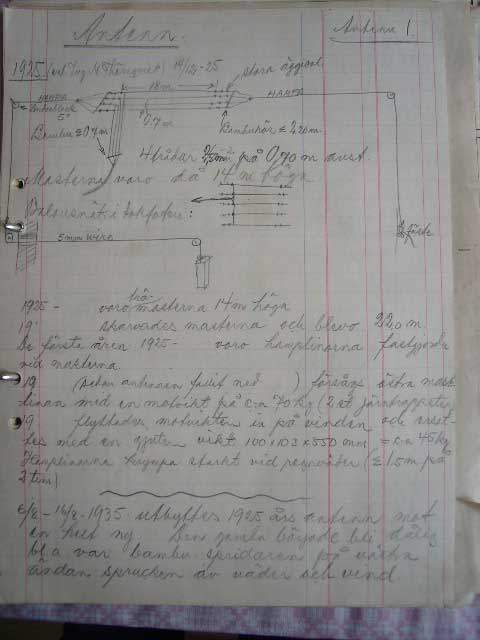 Antenn.
Antenn 1.
1925 (enl. Ing. 19/125-25
18 m
stora äggisol.
HAMPA
HAMPA
5"
Bambu = 0.7 m
0.7 m
Bamburör = 2.20 m.
4 trådar på 0,70 m avst.
Masterna voro då 14 m höga
Balansnät i takfoten:
5 mm wire
fäste
1925 - voro trä- masterna 14 m höga
19 skarvades masterna och blevo 22,0 m.
De första åren 1925 - voro hamplinorna fastgjorda
vid masterna.
19 (sedan antennen fallit ned ) försågs östra mast-
linan med en motvikt på c:a 70 kg (2 st järntrappsteg
19 flyttades motvikten in på vinden och
tes med en gjuten vikt 100 x 103 x 550 mm = c:a 45 kg
Hamplinorna krympa starkt vid regnväder (= 1.5 m på
2 tim)
6/8 - 16/8 - 1935 utbyttes 1925 års antenn mot
en helt ny. Den gamla började bli dålig
bl a var bambu-spridaren på västra
ändan sprucken av väder och vind